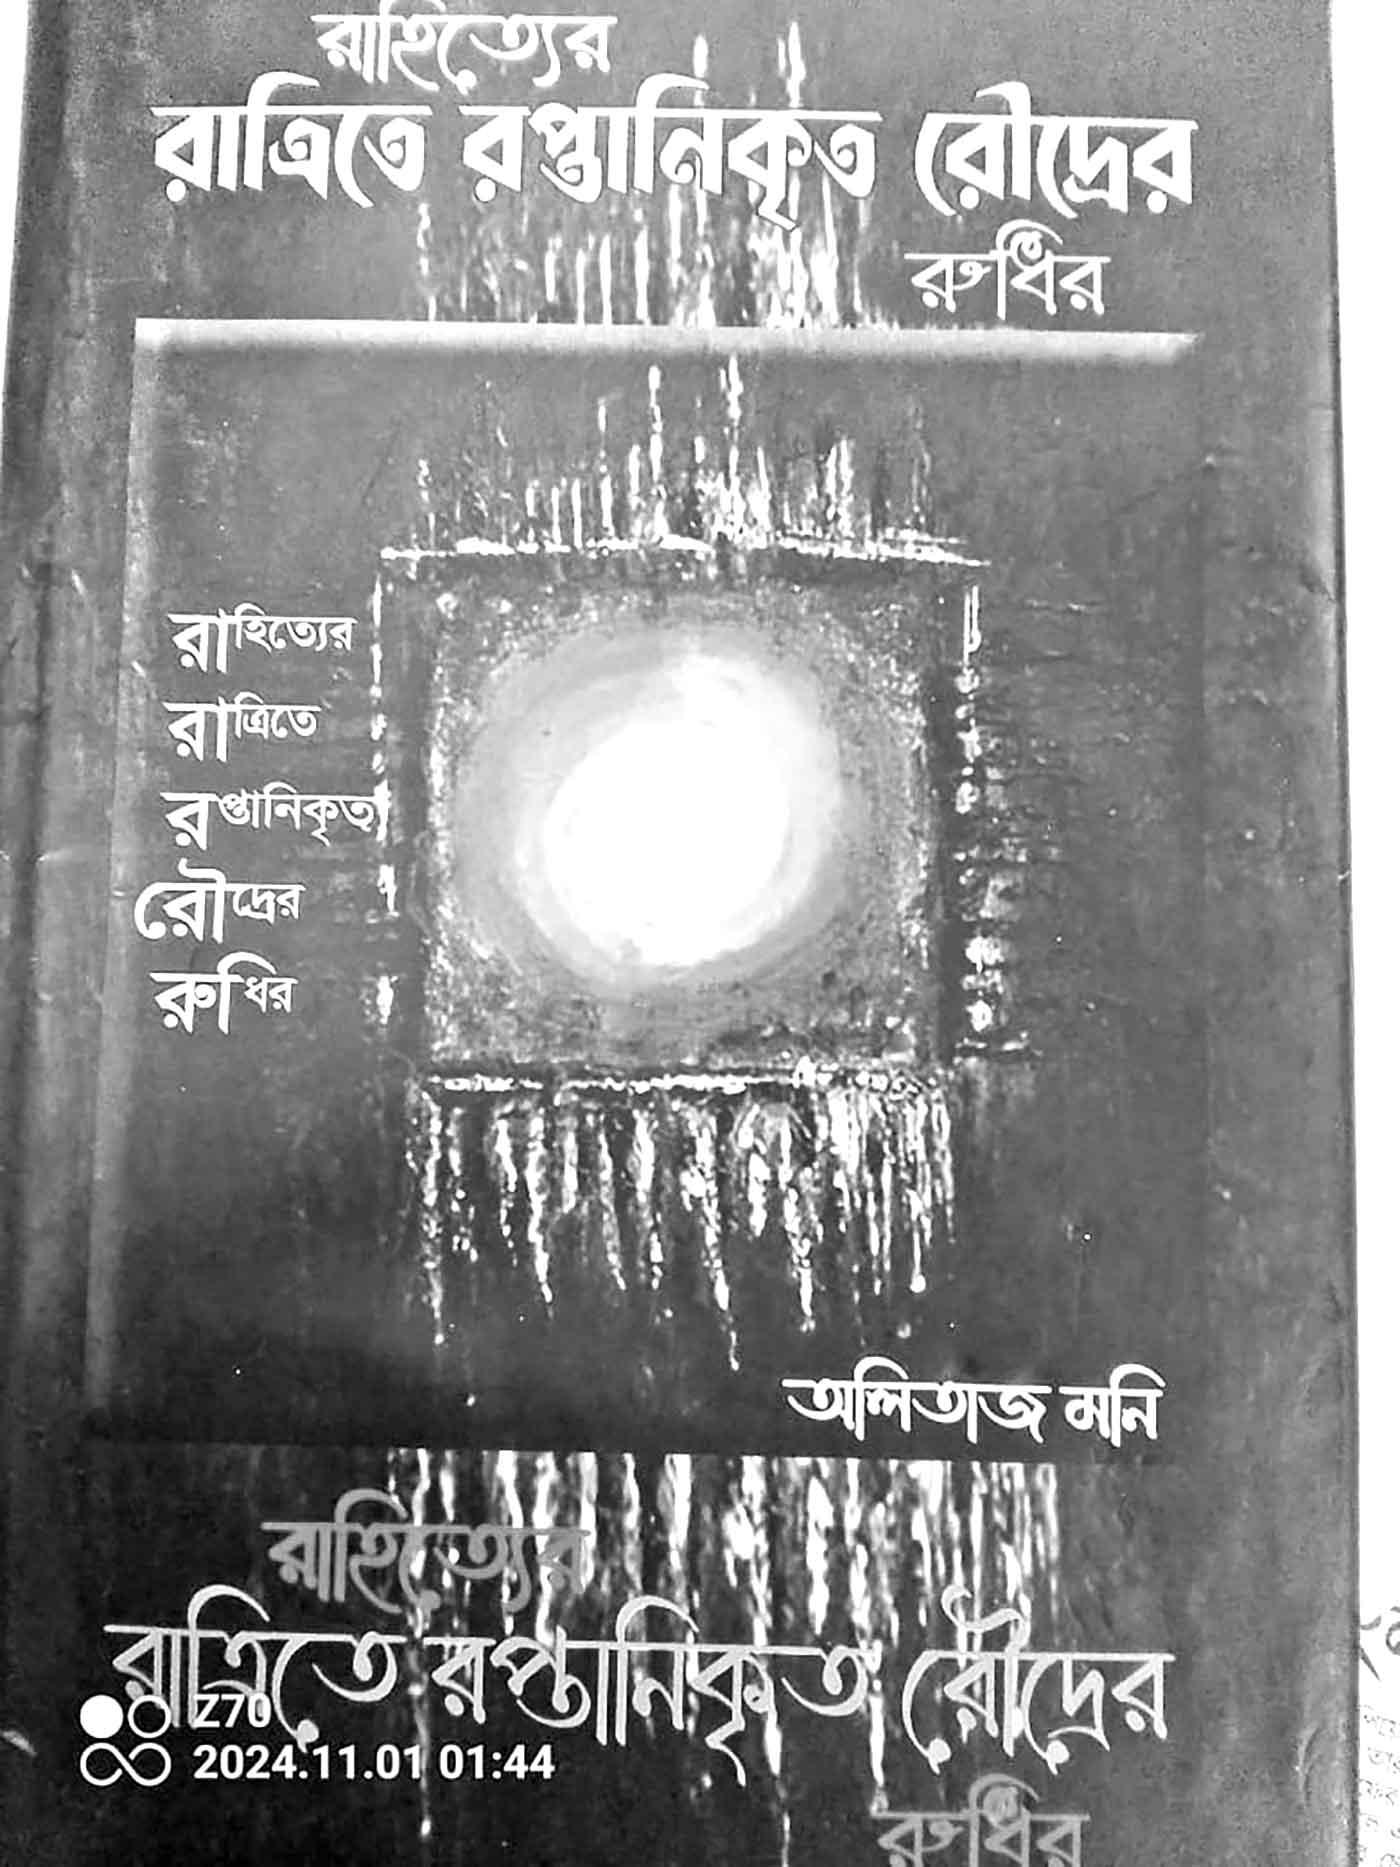 রাহিত্যের
রাত্রিতে রপ্তানিকৃত রৌদ্রের
রুধির
রাহিত্যের
রাত্রিতে
রপ্তানিকৃত
রৌদ্রের
রুধির
অলিতাজ মনি
রাহিত্যের
রাত্রিতে রপ্তানিকৃত রৌদ্রের
Z70
2024.11.01 01:44
রুধির